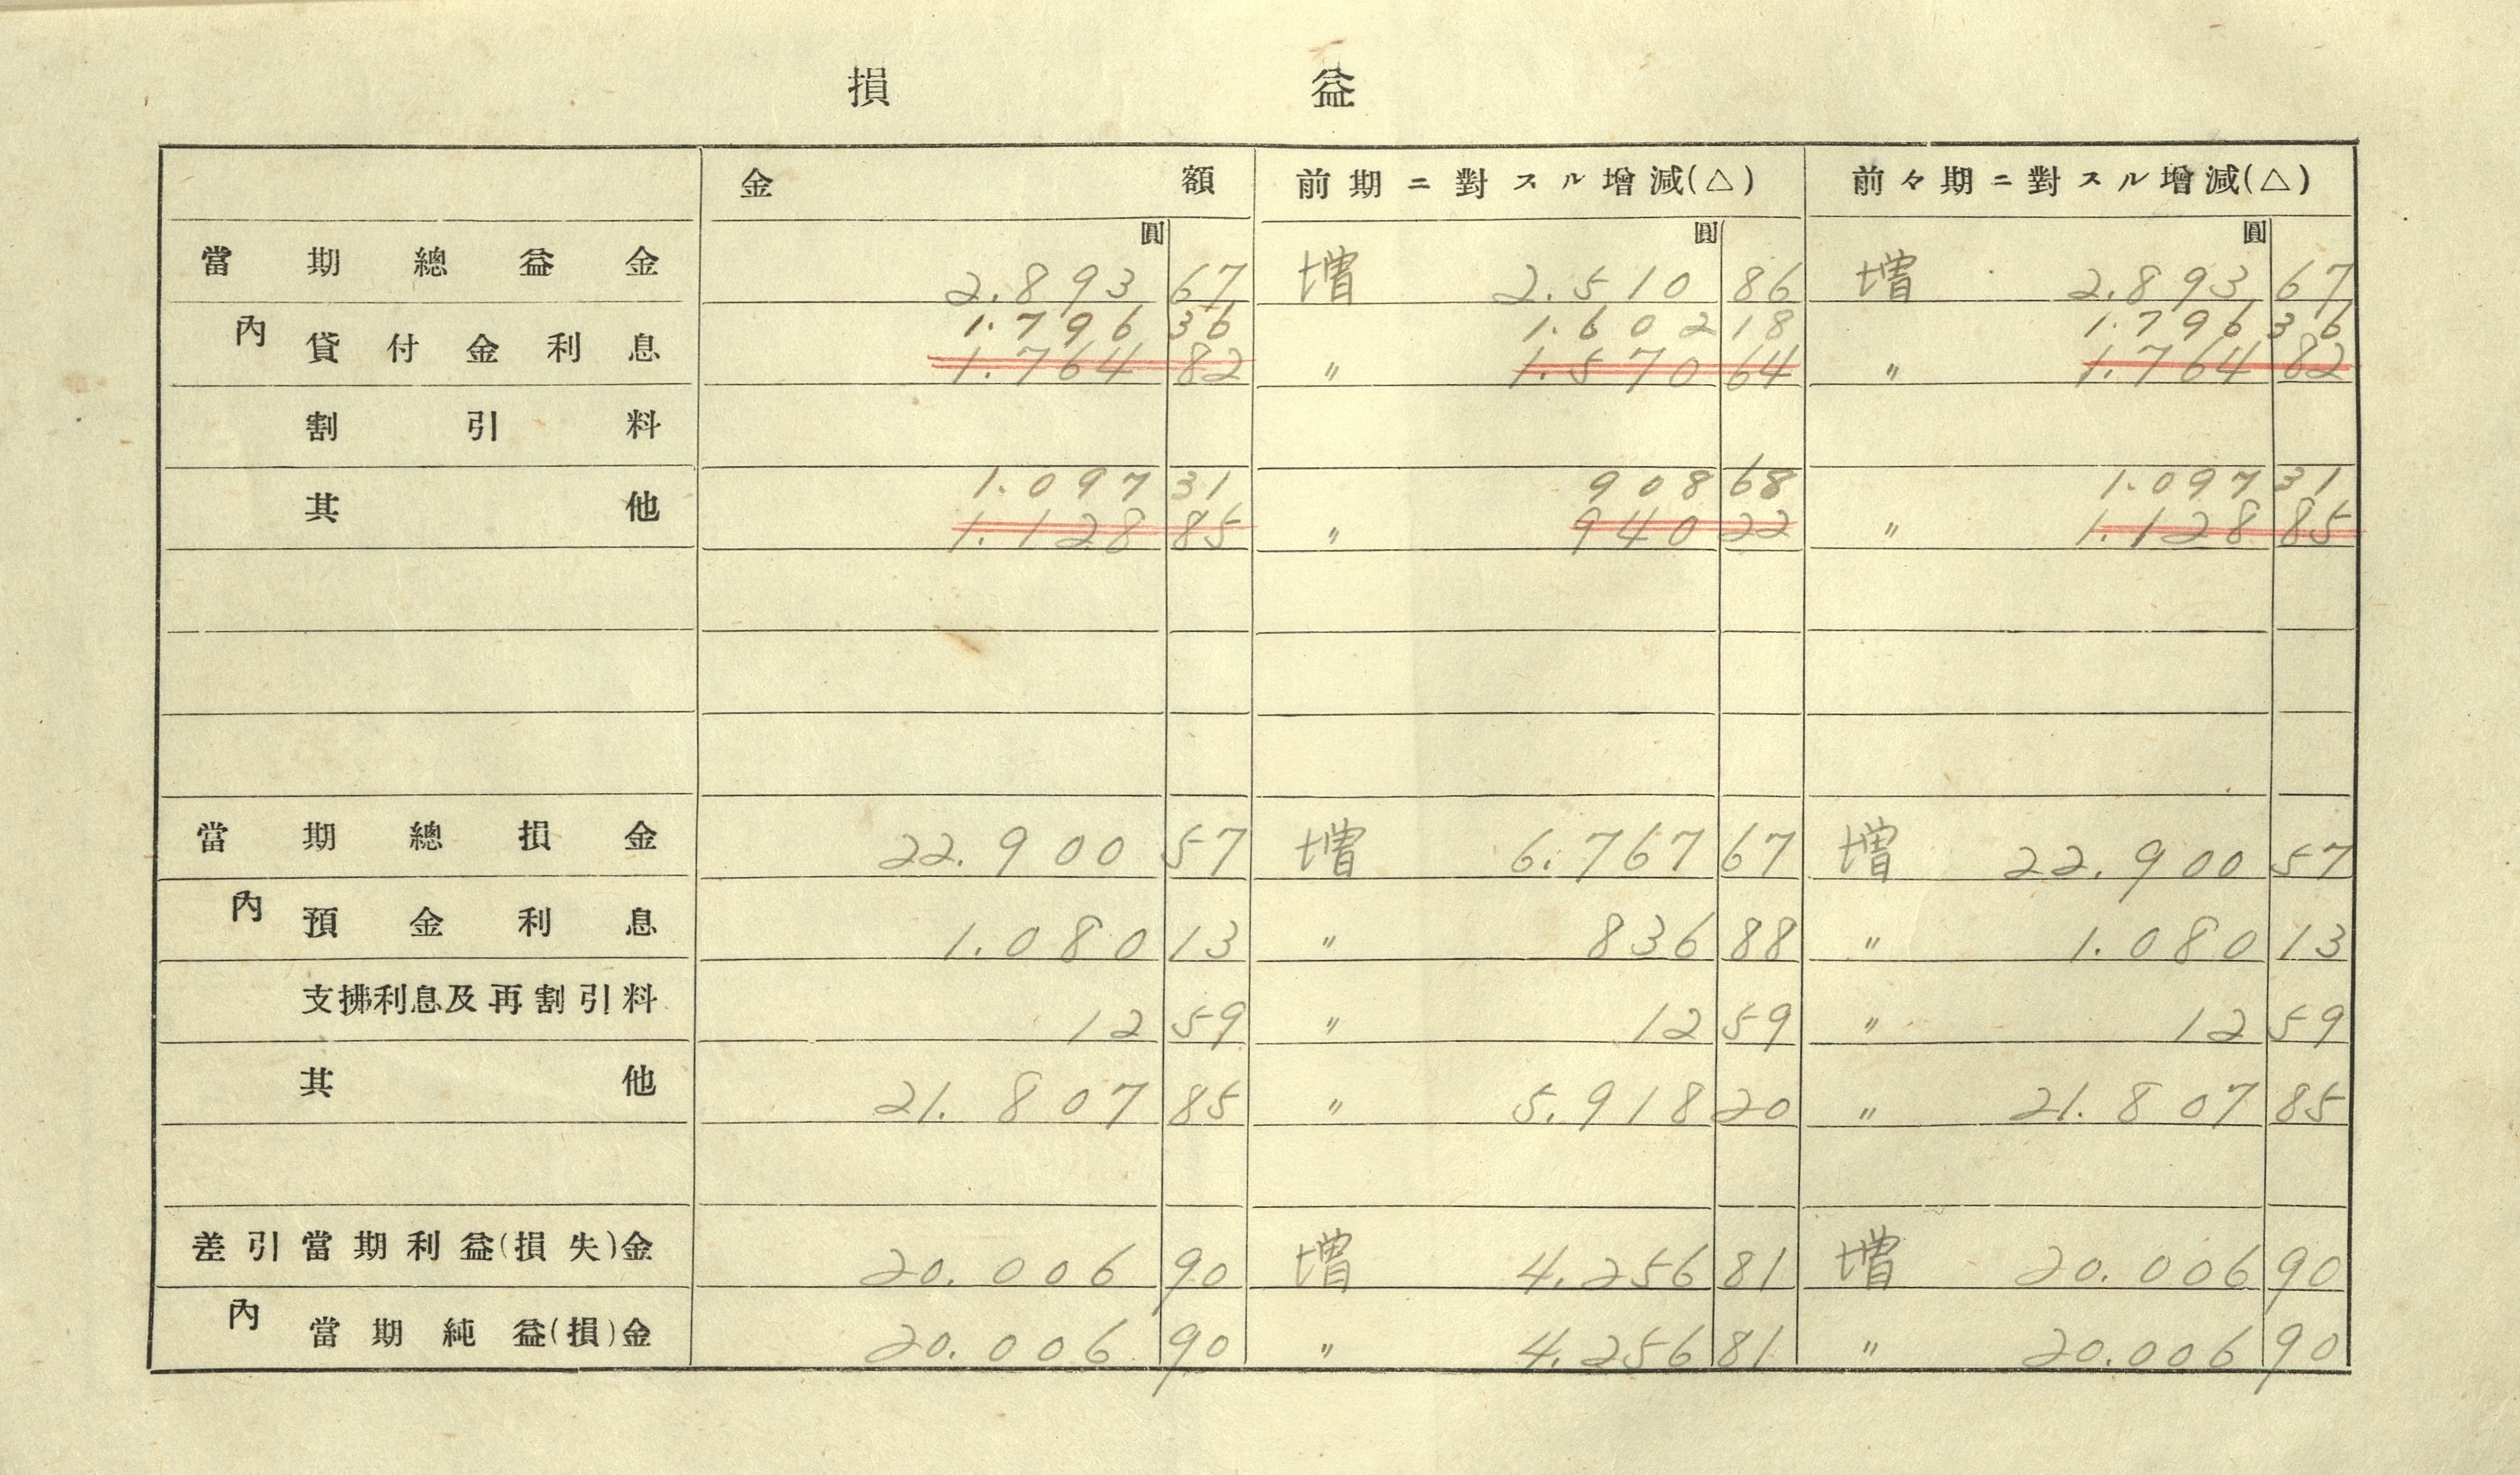 損 益
金 額 前期ニ對スル增減(△) 前々期ニ對スル增減(△)
圓 圓 圓
當期總益金 2.893 67 増 2.510 86 増 2.893 67
1.796 36 1.602 18 1.796 36
內 貸付金利息 1.764 82 〃 1.570 64 〃 1.764 82
割引料
1.097 31 908 68 1.097 31
其他 1.128 85 〃 940 22 〃 1.128 85
當期總損金 22.900 57 増 6.767 67 増 22.900 57
內 預金利息 1.080 13 〃 836 88 〃 1.080 13
支拂利息及再割引料 12 59 〃 12 59 〃 12 59
其他 21.807 85 〃 5.918 20 〃 21.807 85
差引當期利益(損失)金 20.006 90 増 4.256 81 増 20.006 90
內 當期純益(損)金 20.006 90 〃 4.256 81 〃 20.006 90